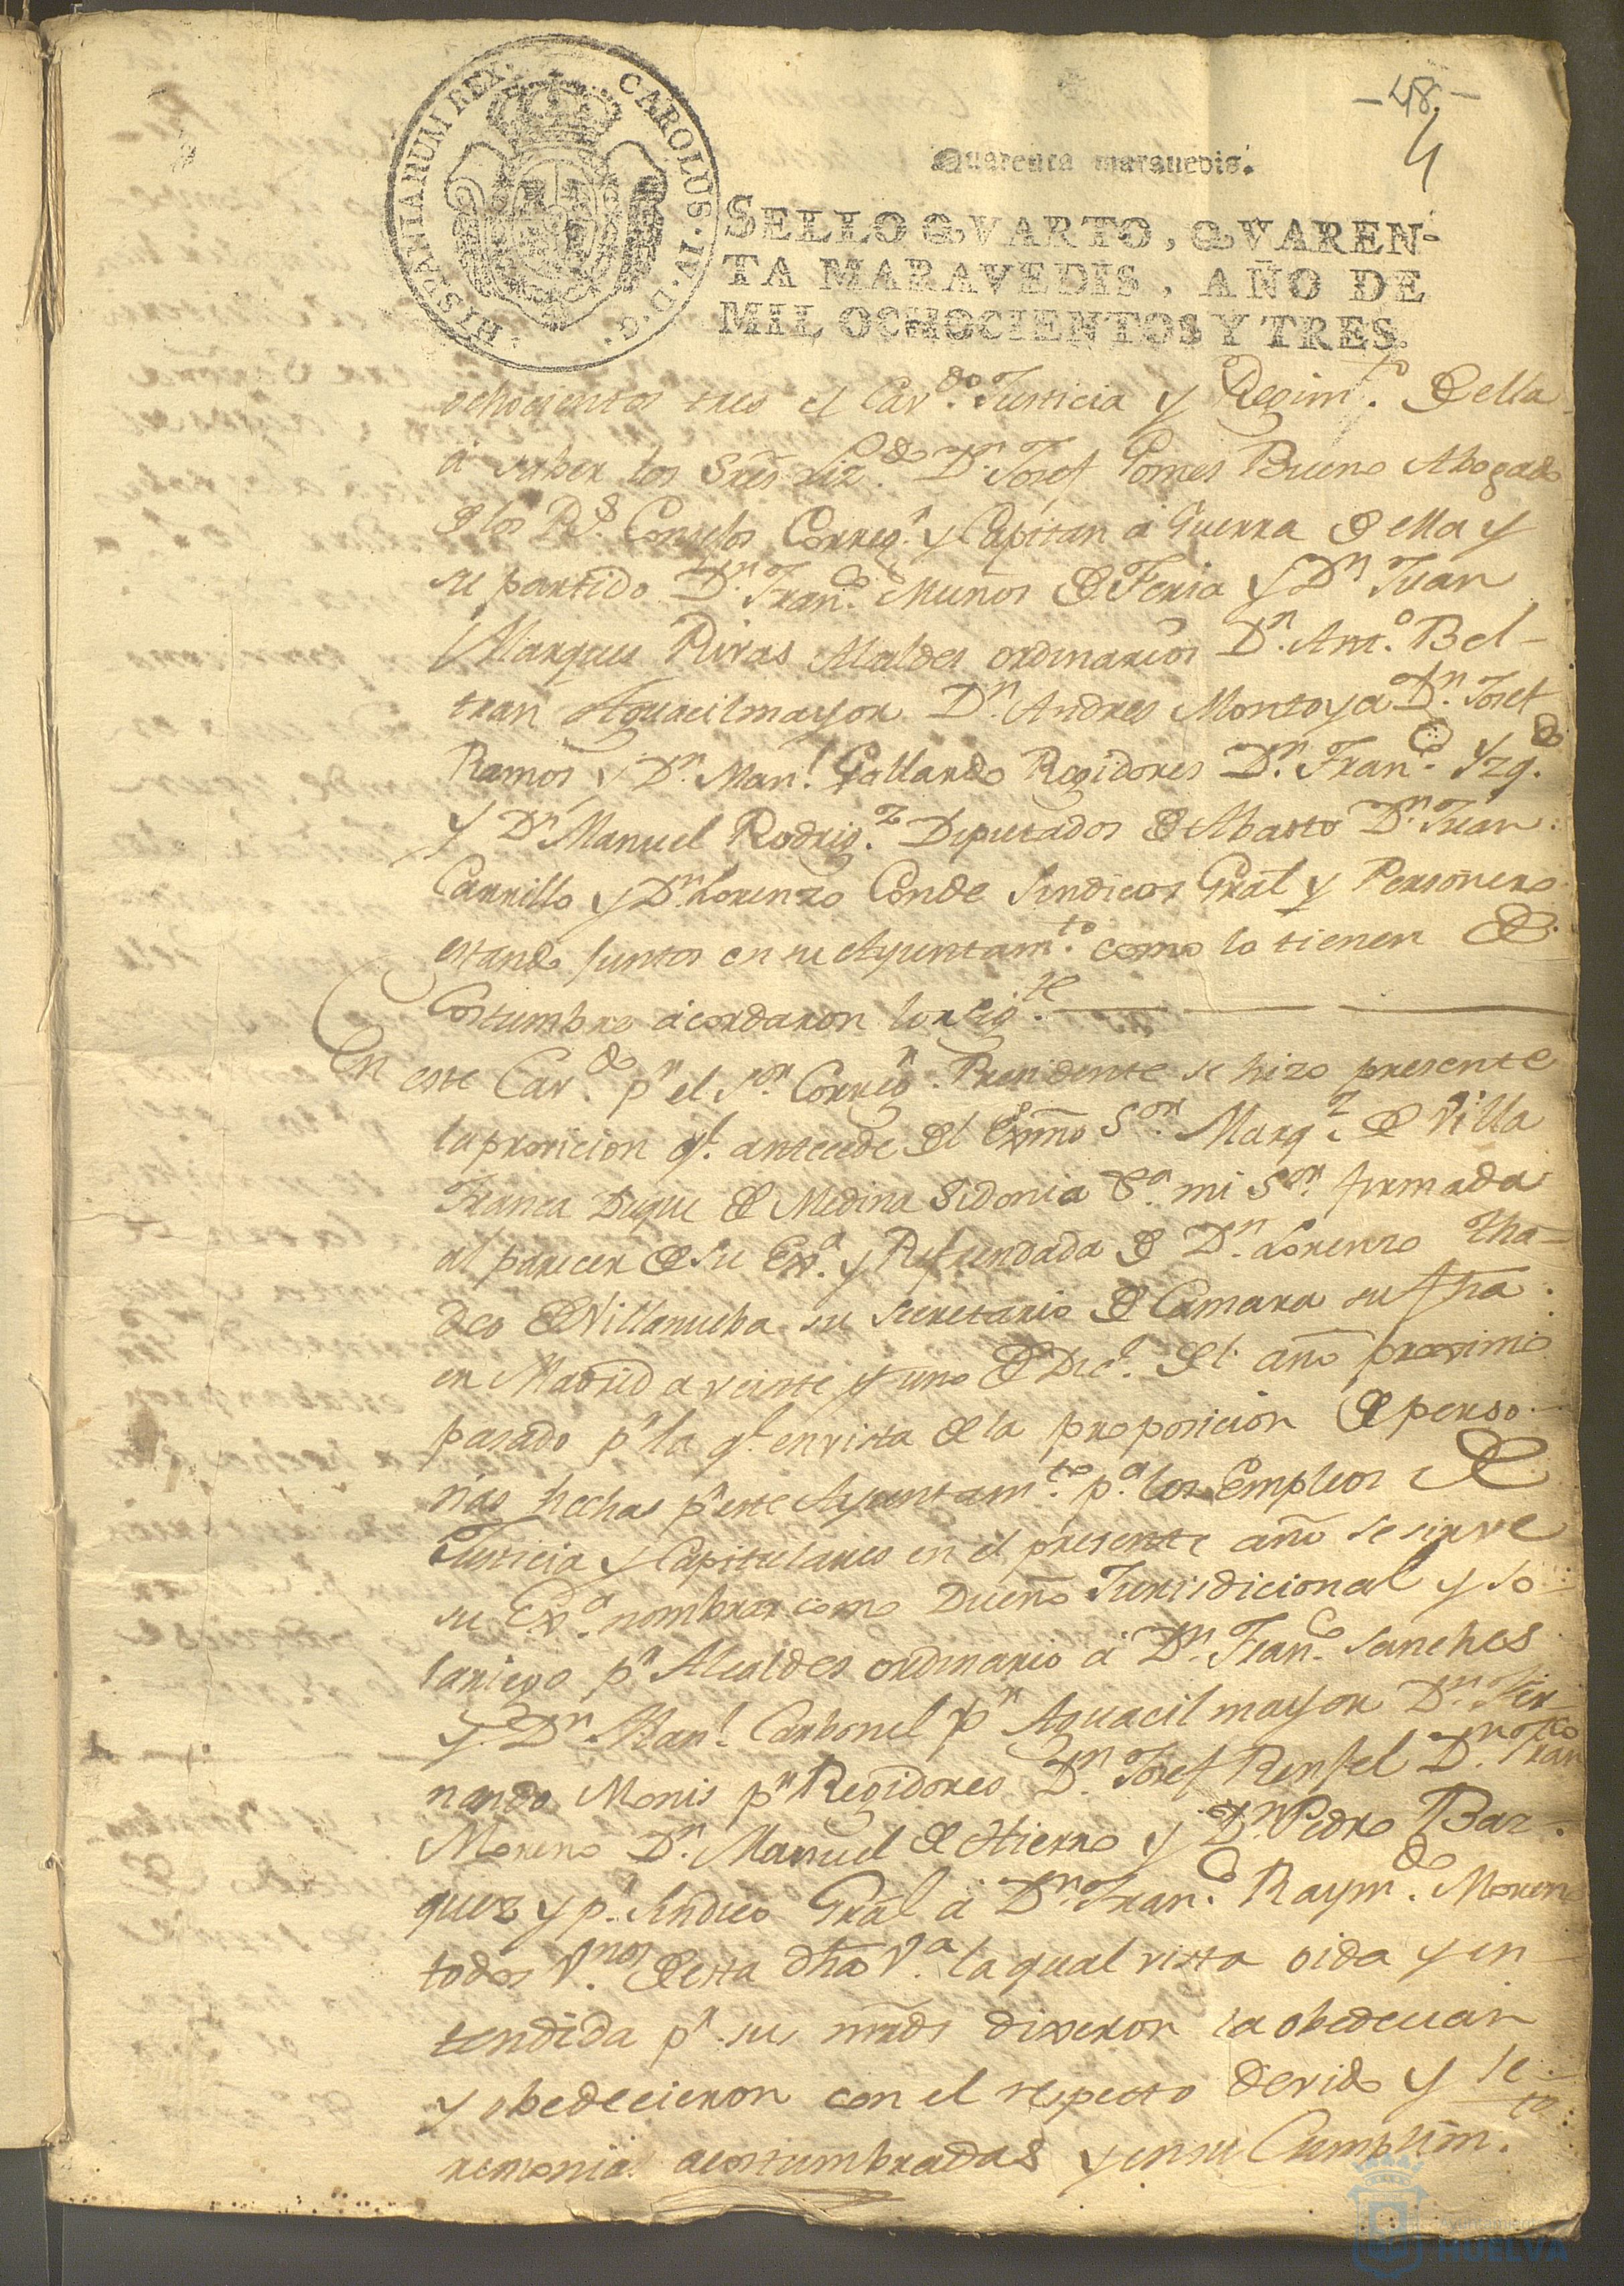 -48.-
4
HISPANIARUM REX. CAROLUS.IV.D.G.
Quarenta maravedis.
SELLO QVARTO, QVAREN-
TA MARAVEDIS, AÑO DE
MIL OCHOCIENTOS Y TRES.
ochocientos tres el Cavdo. Justicia y Regimto. de ella
á saber los Sres Lizdo. Dn. Josef Gomes Bueno Abogado
de los Rs. Consejos Correxr. y Capitan á Guerra de ella y
su partido Dn. Franco. Muños de Feria y Dn Juan
Marques Rivas Alcaldes ordinarios Dn. Anto. Bel-
tran Aguacil mayor Dn. Andres Montoya Dn. Josef
Ramos y Dn. Manl. Gallardo Regidores Dn. Franco. Yzqdo.
y Dn Manuel Rodrigz. Diputados de Abasto Dn. Juan
Carrillo y Dn. Lorenzo Conde Sindicos Gral y Personero
estando juntos en su Ayuntamto. como lo tienen de
Costumbre acordaron lo sigte.
En este Cavdo. pr el Sor Corregr. Presidente se hizo presente
la provicion qe. antecede del Exmo Sor. Marqz. de Villa
Franca Duque de Medina Sidonia Va. mi Sor. firmada
al parecer de su Exa. y Refrendada de Dn. Lorenzo Tha-
deo de Villanueba su secretario de Camara su fha
en Madrid a veinte y uno de Dice. del año proximo
pasado pr la qe. en vista de la proposicion de perso-
nas hechas pr este Ayuntamto. pa. los Empleos de
Justicia y Capitulares en el presente año se sirve
su Exa. nombrar como Dueño Jurisdicional y so-
lariego pr Alcaldes ordinario á Dn. Franco. Sanches
y Dn. Manl. Carbonel pr Aguacil mayor Dn. Fer
nando Monis pr Regidores Dn. Josef Rensel Dn. Franco
Moreno Dn. Manuel de Hierro y Dn. Pedro Baz-
quez y pr. Sindico Gral á Dn. Franco. Raymdo. Moreno
todos Vnos. de esta dha Va. la qual vista oida y en-
tendida pr. sus mrds dixeron la obedecian
y obedecieron con el respecto devido y se-
remonias acostumbradas y en su Cumplimto.
Ayuntamiento
HUELVA